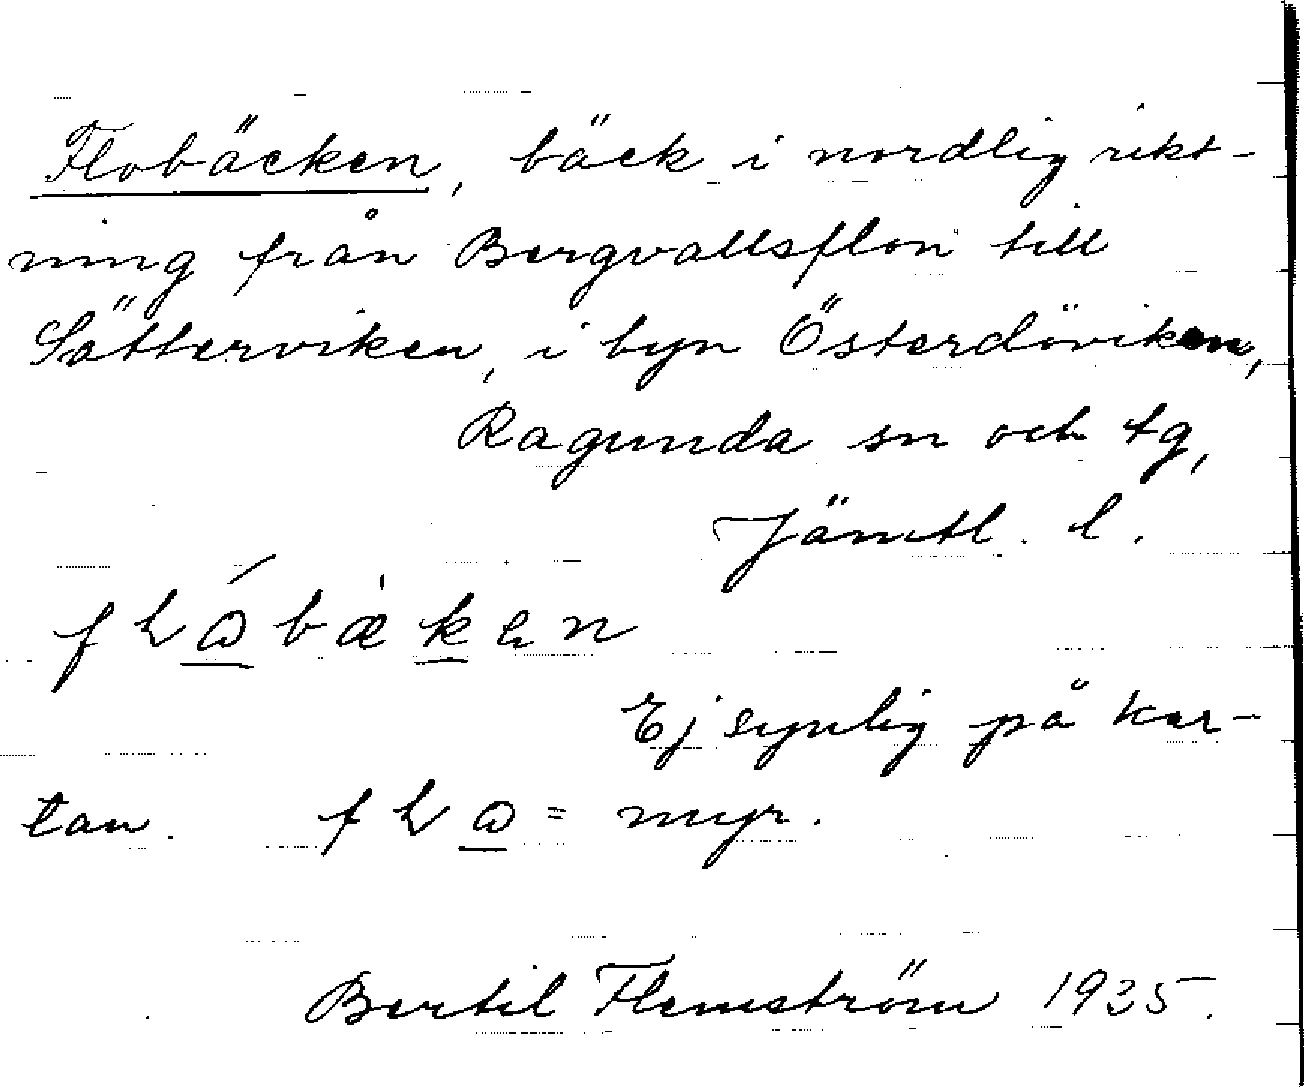 Flobäcken, bäck i nordlig rikt-
ning från Bergvallsflon till
Sätterviken, i byn Österdöviken,
Ragunda sn och tg,
Jämtl. l.
Ej synlig på kar-
tan. = myr.
Bertil Flemström 1935.